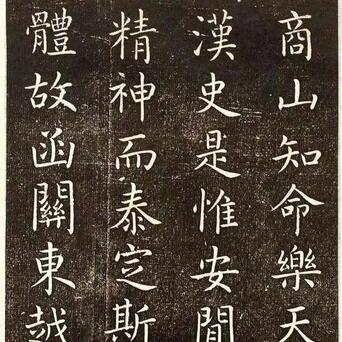 商山知命樂天
漢史是惟安閒
精神而泰定斯
體故函關東越